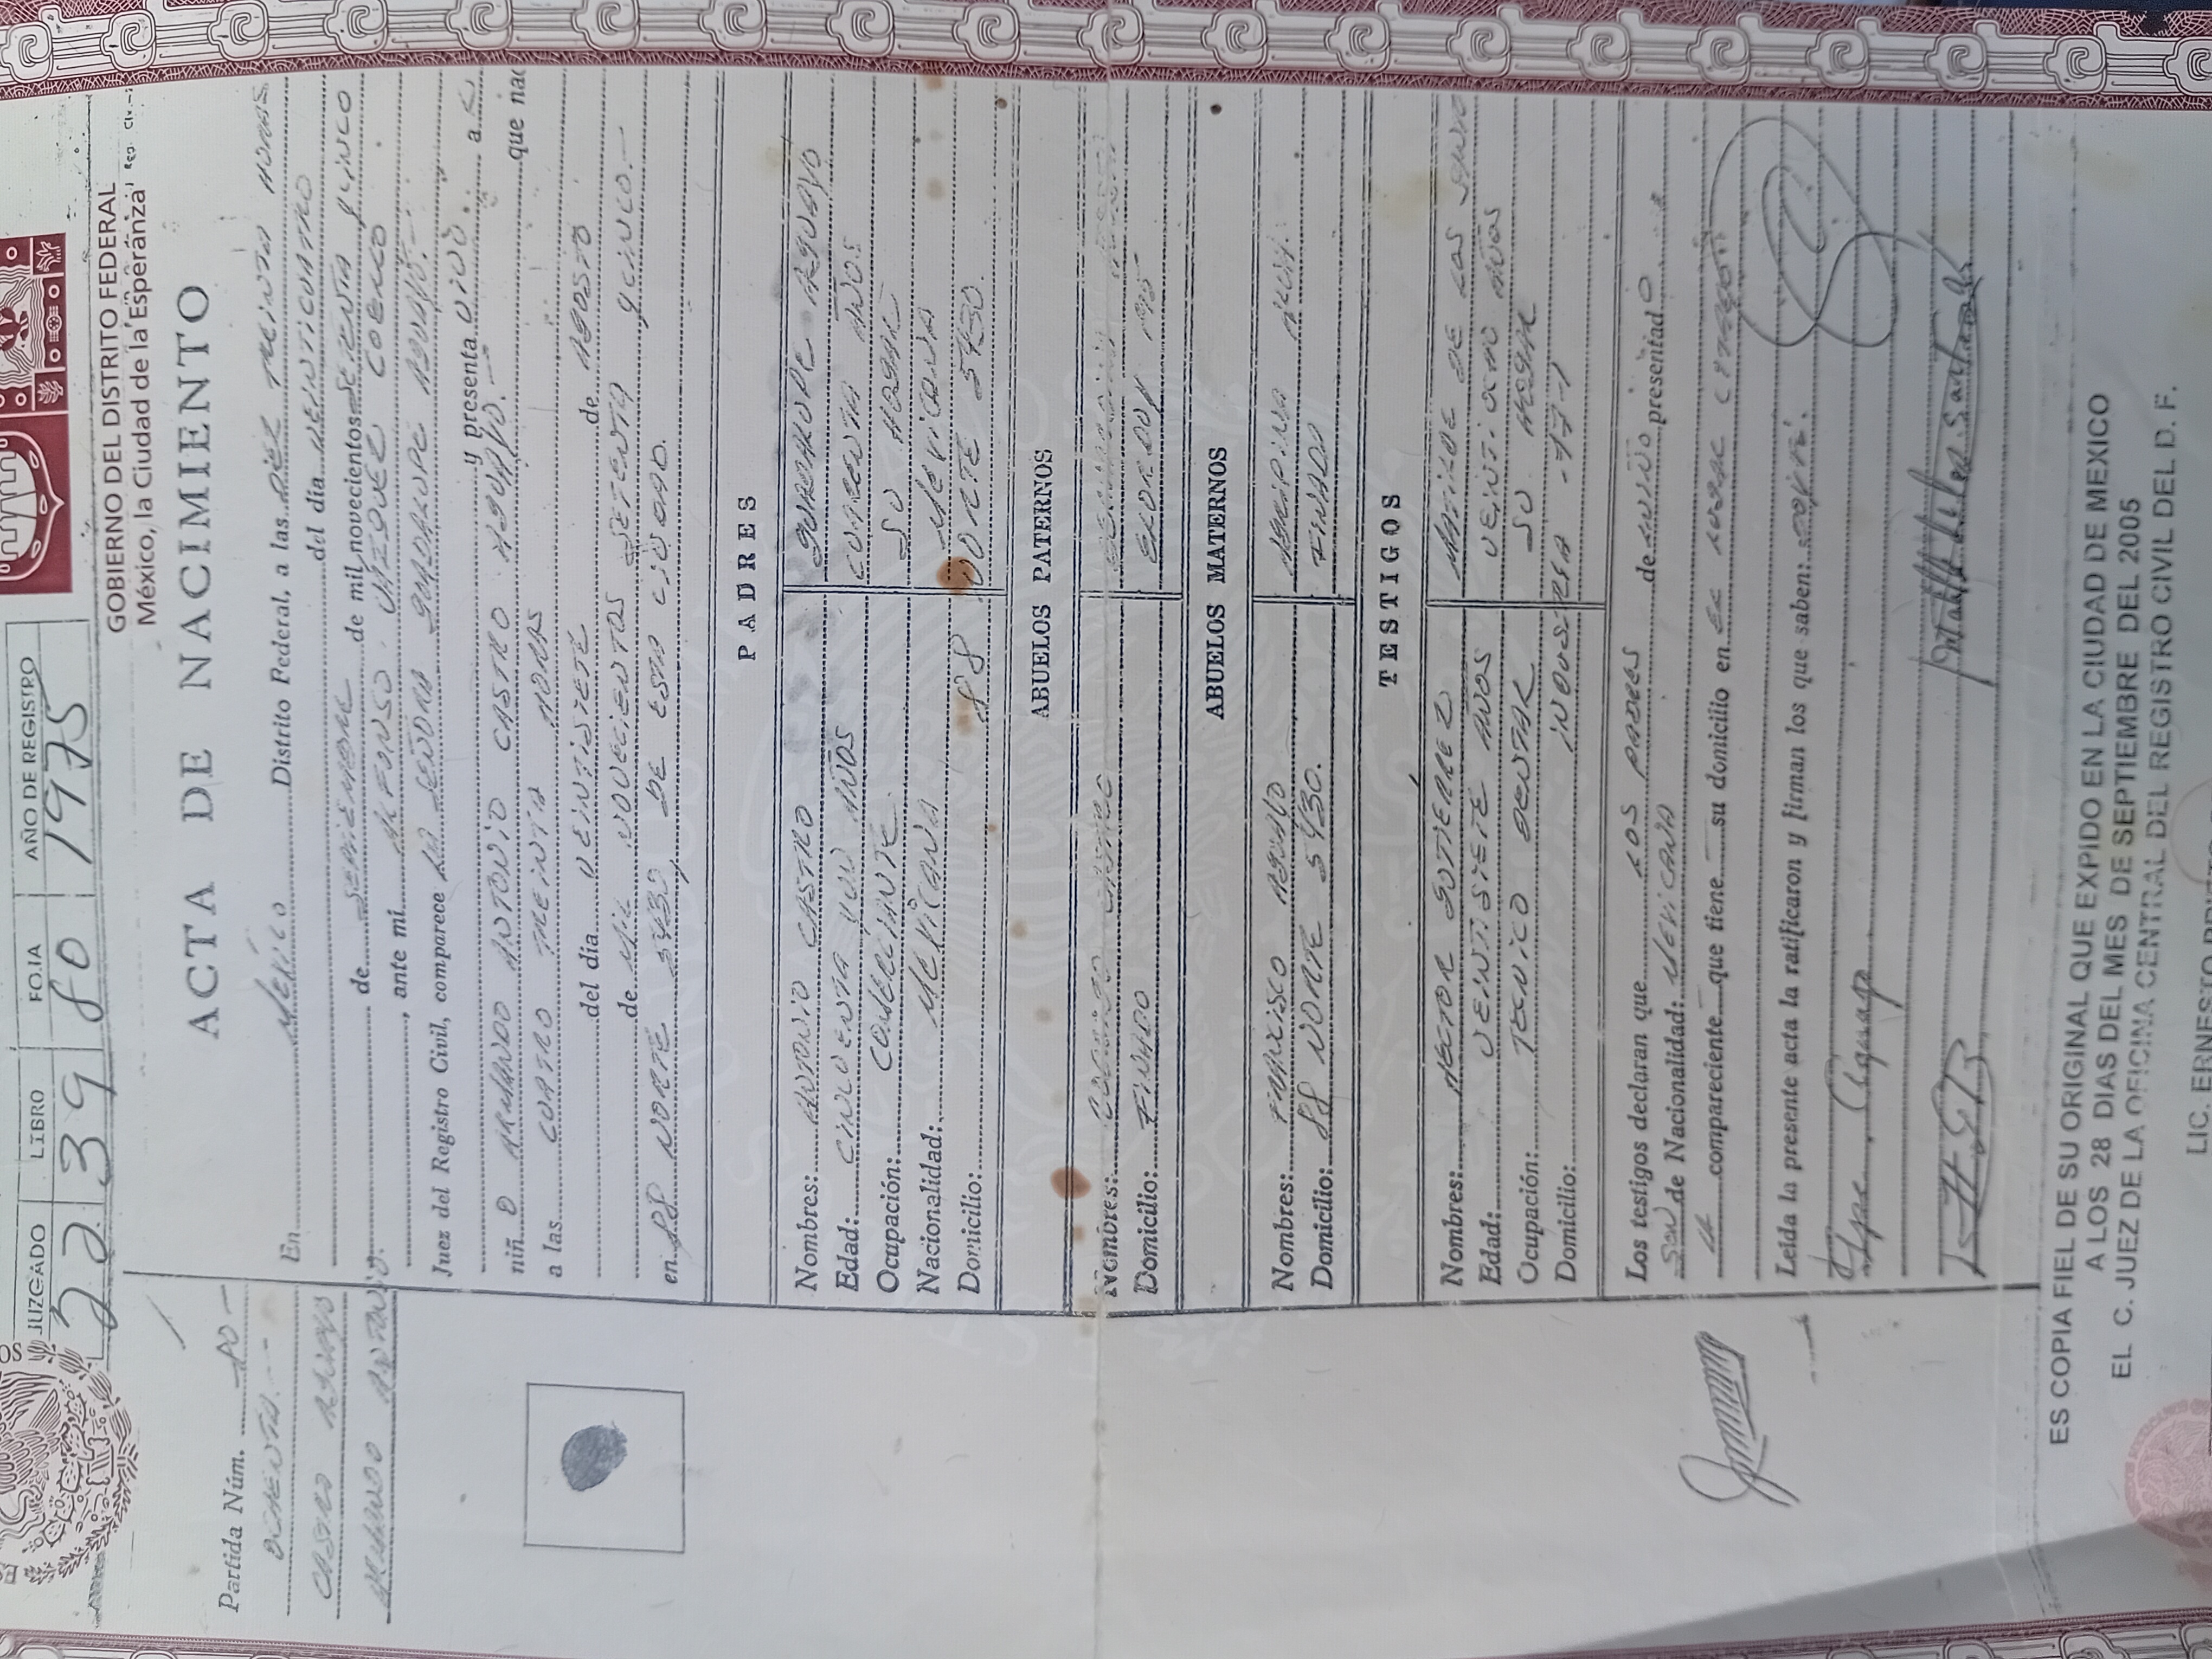 JUZGADO LIBRO FOJA AÑO DE REGISTRO
22 39 80 1975
GOBIERNO DEL DISTRITO FEDERAL
México, la Ciudad de la Esperanza
ACTA DE NACIMIENTO
Partida Núm. 80
OCHENTA
CASTRO AGUAYO
ARMANDO ANTONIO.
En México Distrito Federal, a las DIEZ TREINTA HORAS
del día VEINTICUATRO
de SEPTIEMBRE de mil novecientos SETENTA Y CINCO
, ante mi ALFONSO VAZQUEZ COELLO
Juez del Registro Civil, comparece LA SEÑORA GUADALUPE AGUAYO.
y presenta VIVO a
niñ O ARMANDO ANTONIO CASTRO AGUAYO. que nac
a las CUATRO TREINTA HORAS
del día VEINTISIETE de AGOSTO
de MIL NOVECIENTOS SETENTA Y CINCO.
en 88 NORTE 5430 DE ESTA CIUDAD.
PADRES
Nombres: ANTONIO CASTRO GUADALUPE AGUAYO
Edad: CINCUENTA Y UN AÑOS CUARENTA AÑOS
Ocupación: COMERCIANTE SU HOGAR
Nacionalidad: MEXICANA MEXICANA
Domicilio: 88 NORTE 5430
ABUELOS PATERNOS
Nombres: CASTRO
Domicilio: FINADO
ABUELOS MATERNOS
Nombres: FRANCISCO AGUAYO
Domicilio: 88 NORTE 5430. FINADA
TESTIGOS
Nombres: HECTOR GUTIERREZ MATILDE DE LOS SANTOS
Edad: VEINTISIETE AÑOS VEINTIOCHO AÑOS
Ocupación: TECNICO DENTAL SU HOGAR
Domicilio: INDUSTRIA 17-1
Los testigos declaran que LOS PADRES de NIÑO presentad O
SON de Nacionalidad: MEXICANA
LA compareciente que tiene su domicilio en EL LUGAR CITADO
Leída la presente acta la ratificaron y firman los que saben:
ES COPIA FIEL DE SU ORIGINAL QUE EXPIDO EN LA CIUDAD DE MEXICO
A LOS 28 DIAS DEL MES DE SEPTIEMBRE DEL 2005
EL C. JUEZ DE LA OFICINA CENTRAL DEL REGISTRO CIVIL DEL D. F.
LIC. ERNESTO